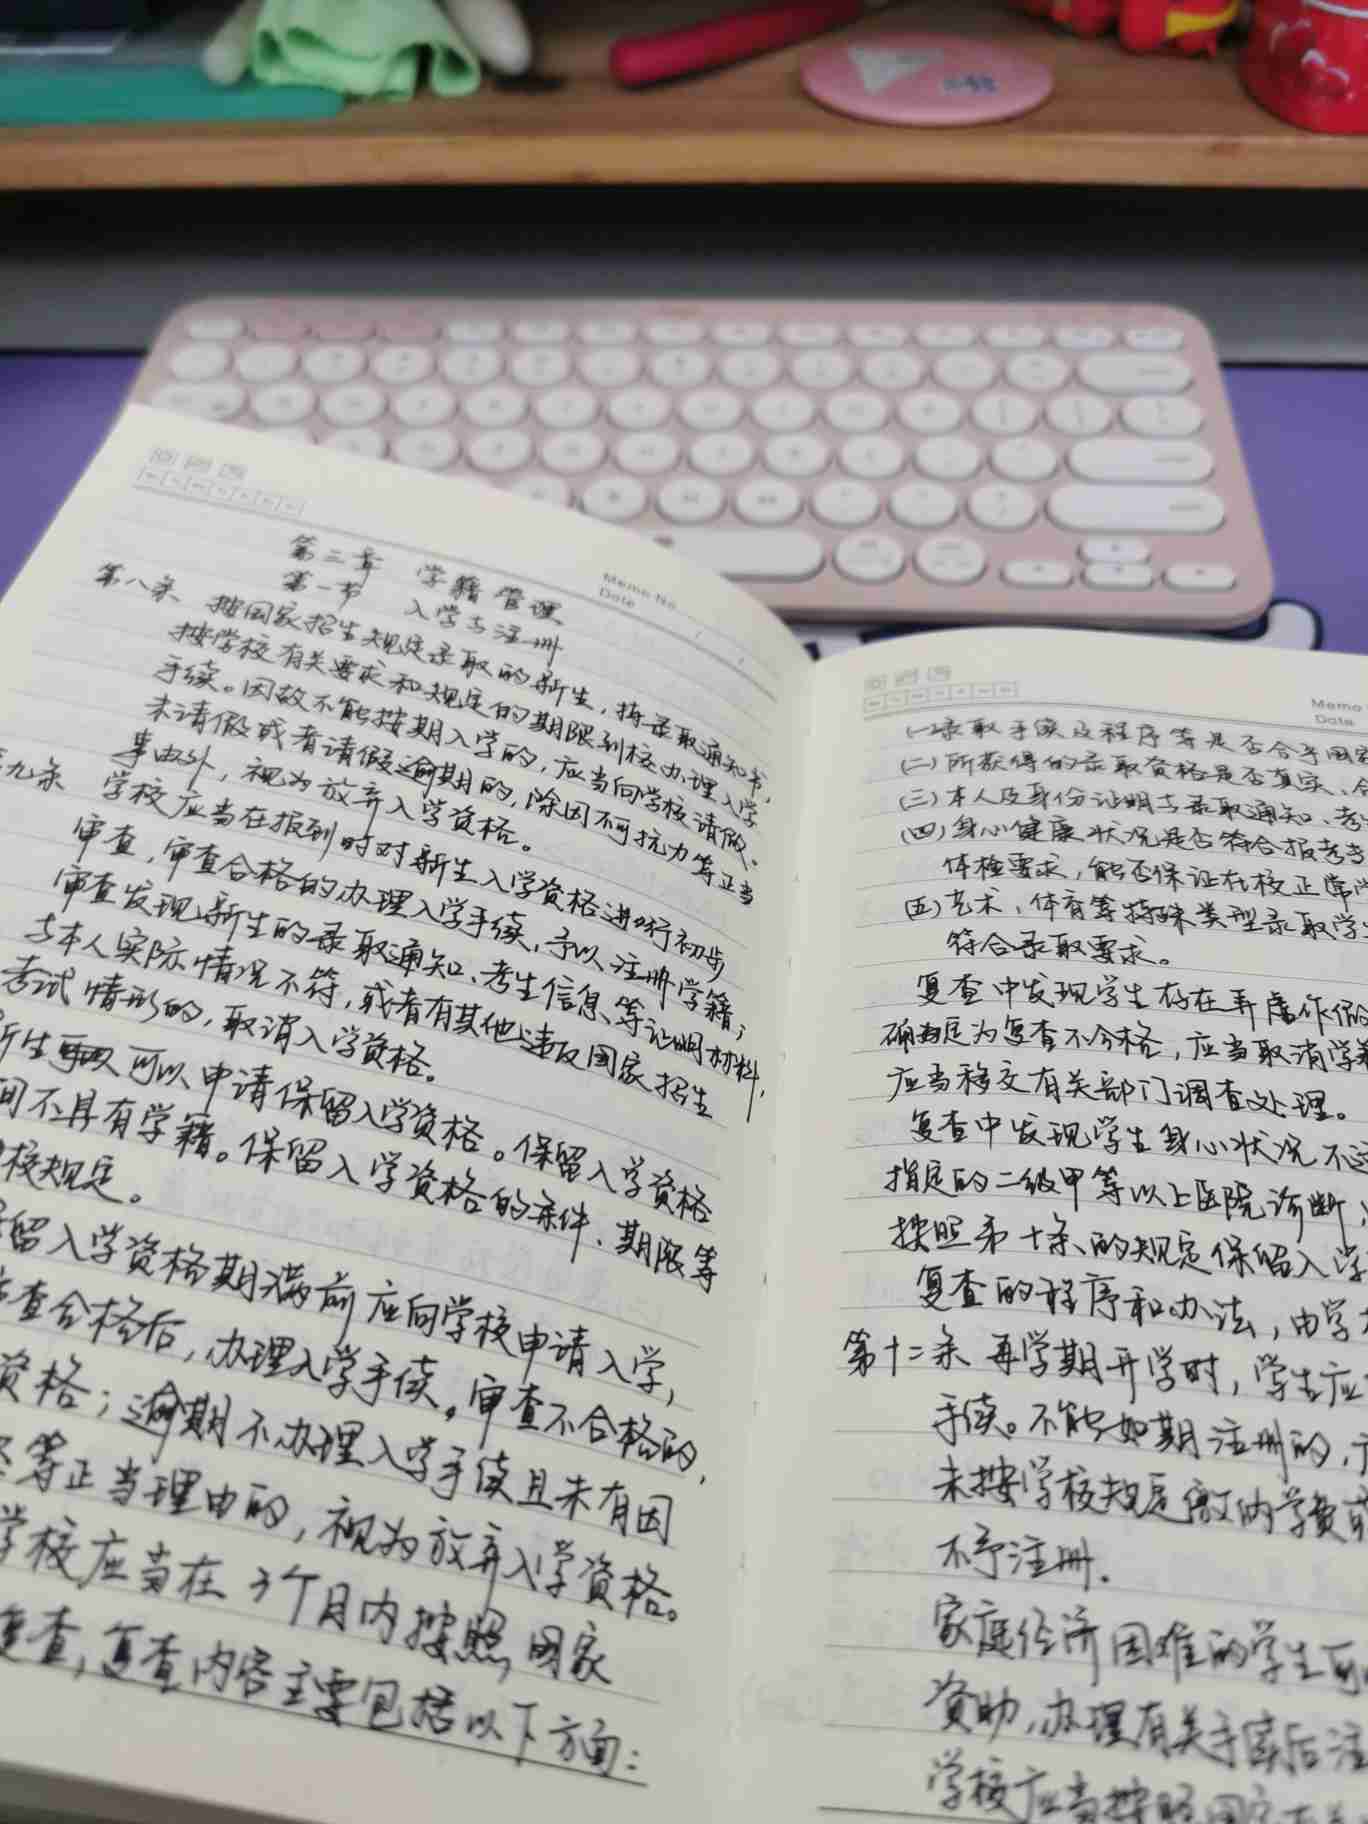 Memo No.
Date
第三章 学籍管理
第一节 入学与注册
第八条 按国家招生规定录取的新生,持录取通知书,
按学校有关要求和规定的期限到校办理入学
手续。因故不能按期入学的,应当向学校请假。
未请假或者请假逾期的,除因不可抗力等正当
事由外,视为放弃入学资格。
九条 学校应当在报到时对新生入学资格进行初步
审查,审查合格的办理入学手续,予以注册学籍;
审查发现新生的录取通知、考生信息等证明材料,
与本人实际情况不符,或者有其他违反国家招生
考试情形的,取消入学资格。
新生可以申请保留入学资格。保留入学资格
间不具有学籍。保留入学资格的条件、期限等
校规定。
留入学资格期满前应向学校申请入学,
查合格后,办理入学手续。审查不合格的,
资格;逾期不办理入学手续且未有因
等正当理由的,视为放弃入学资格。
学校应当在3个月内按照国家
复查,复查内容主要包括以下方面:
Memo
Date
(一)录取手续及程序等是否合乎国家
(二)所获得的录取资格是否真实、合
(三)本人及身份证明与录取通知、考
(四)身心健康状况是否符合报考
体检要求,能否保证在校正常
(五)艺术、体育等特殊类型录取学生
符合录取要求。
复查中发现学生存在弄虚作假
确定为复查不合格,应当取消学籍
应当移交有关部门调查处理。
复查中发现学生身心状况不适
指定的二级甲等以上医院诊断,
按照第十条的规定保留入学
复查的程序和办法,由学
第十二条 每学期开学时,学生应
手续。不能如期注册的,
未按学校规定缴纳学费
不予注册.
家庭经济困难的学生可
资助,办理有关手续后注
学校应当按照国家有关